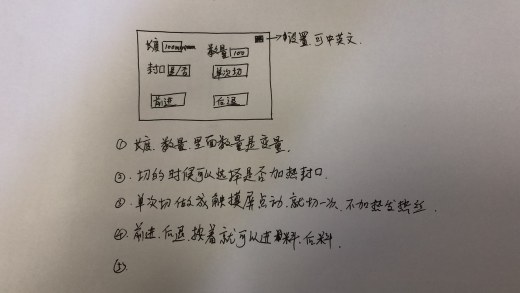 长度 100mm
数量 100
设置.可中英文.
封口 是/否
单次切
前进
后退
①长度.数量.里面数量是变量.
②.切的时候可以选择是否加热封口.
③.单次切做成触摸屏点动.就切一次.不加热发热丝.
④.前进.后退.按着就可以进料.后料.
⑤.